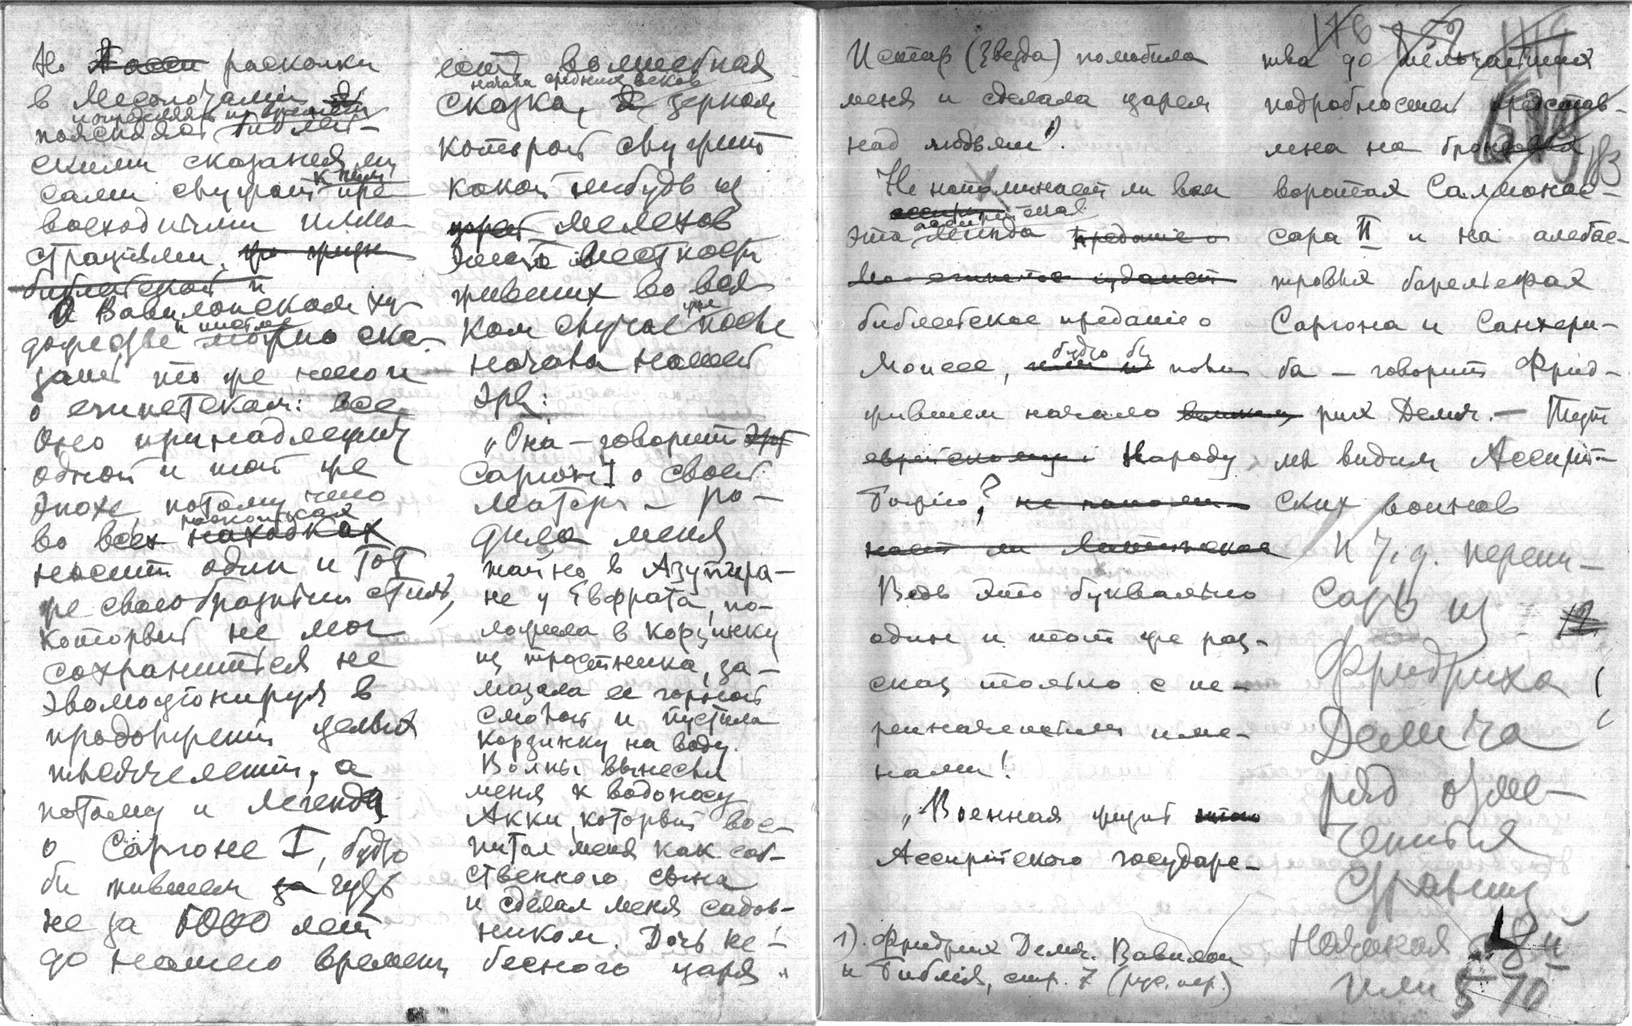 Но раскопки
в Месопотамии
поясняясь библей-
скими сказаниями
сами служат к ним пре
восходными иллю-
страциями.
библейской и
И в Вавилонском ху-
дожестве и письме можно ска-
зать то же что и
о египетском: все
оно принадлежит
одной и той же
эпохе потому чело
во всех раскопках находках
носит один и тот
же своеобразный стиль,
который не мог
сохраниться не
эволюционируя в
продолжении целых
тысячелетий, а
потому и легенда
о Саргоне I, будто
бы жившем за чуть
не за 6000 лет
до нашего времени
есть волшебная
начала средних веков
сказка, зерном
которой служит
какой нибудь из
царей мелеков
этой местности
живших во вся
ком случае уже после
начала нашей
эры:
„Она – говорит
Саргон I о своей
матери – ро-
дила меня
тайно в Азупира-
не у Евфрата, по-
ложила в корзинку
из тростника, за-
мазала ее горной
смолой и пустила
корзинку на воду.
Волны вынесли
меня к водоносу
Акки, который вос-
питал меня как соб-
ственного сына
и сделал меня садов-
ником. Дочь не-
бесного царя
Истар (Звезда) полюбила
меня и сделала царем
над людьми".
Не напоминает ли вам
эта ассирийская легенда предание о
библейское предание о
Моисее, будто бы поло
жившем начало
еврейскому народу
Божию? не напоми-
нает ли
Ведь это буквально
один и тот же раз-
сказ только с пе-
реиначенными име-
нами!
„Военная жизнь
Ассирийского государс-
1). Фридрих Делич. Вавилон
и Библия, стр. 7 (рус. пер.)
176
тва до мельчайших
подробностей представ-
лена на бронзовых
183
воротах Салманас-
сара II и на алебас-
тровых барельефах
Саргона и Санхери-
ба – говорит Фрид-
рих Делич. – Тут
мы видим Ассирий-
ских воинов
и т.д. перепи-
сать из
Фридриха
Делича
ряд отме-
ченных
страниц
Начиная 8й
или 10